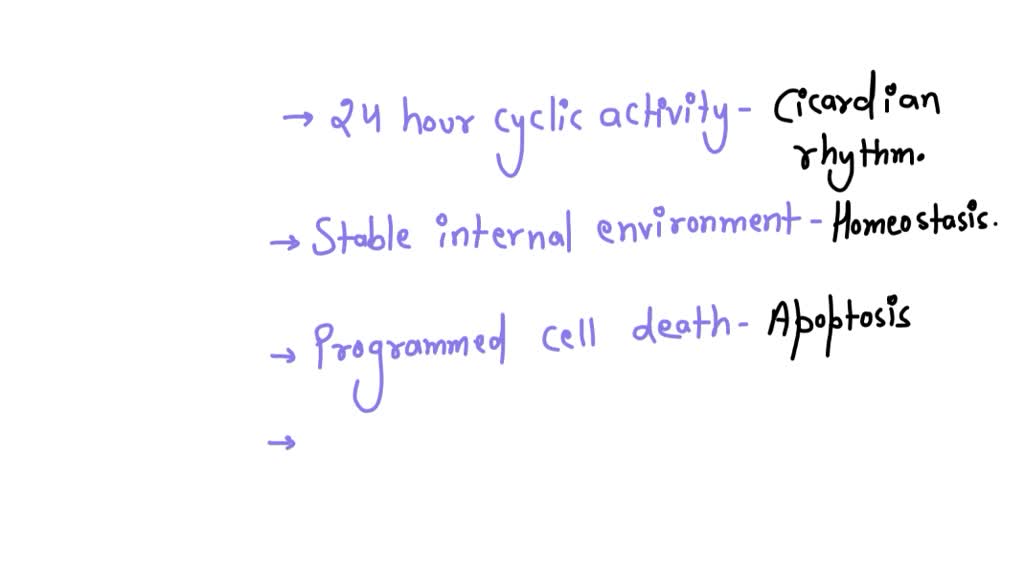 → 24 hour cyclic activity - Cicardian
rhythm.
→ Stable internal environment - Homeostasis.
→ Programmed cell death - Apoptosis
→